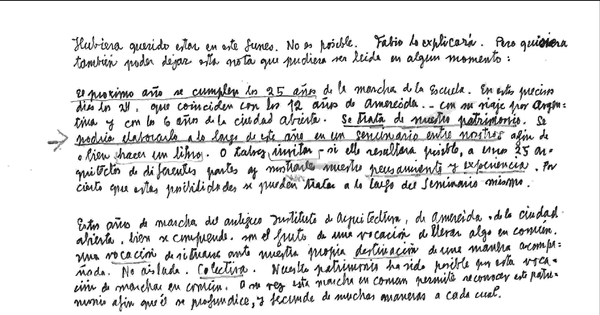 Hubiera querido estar en este Lunes. No es posible. Fabio lo explicará. Pero quisiera
también poder dejar esta nota que pudiera ser leida en algun momento:
El proximo año se cumplen los 25 años de la marcha de la Escuela. En estos precisos
dias los 24, que coinciden con los 12 años de Amereida... con su viaje por Argen-
tina y con los 6 años de la ciudad abierta. Se trata de nuestro patrimonio. Se
podria elaborarla a lo largo de este año en un Seminario entre nostros afin de
o bien hacer un libro. O talvez invitar - si ello resultara posible, a unos 25 ar-
quitectos de diferentes partes y mostrarles nuestro pensamiento y experiencia. Por
cierto que estas posibilidades se pueden tratar a lo largo del Seminario mismo.
Estos años de marcha del antiguo Instituto de Arquitectura, de Amereida y de la ciudad
abierta, bien se comprende son el fruto de una vocación de llevar algo en común.
Una vocación de situarnos ante nuestra propia destinación de una manera acompa-
ñada. No aislada. Colectiva. Nuestro patrimonio ha sido posible por esta voca-
ción de marchar en común. A su vez esta marcha en comun permite reconocer este patri-
monio afin que él se profundice, y fecunde de muchas maneras a cada cual.